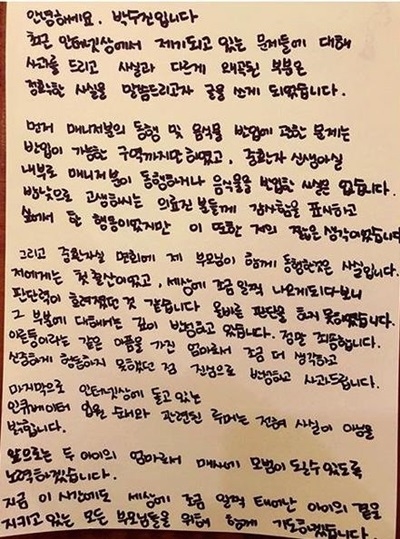 안녕하세요. 박수진입니다
최근 인터넷상에서 제기되고 있는 문제들에 대해
사과를 드리고 사실과 다르게 왜곡된 부분은
정확한 사실을 말씀드리고자 글을 쓰게 되었습니다.
먼저 매니저분의 동행 및 음식물 반입에 관한 문제는
반입이 가능한 구역까지만 하였고, 중환자 신생아실
내부로 매니저분이 동행하거나 음식물을 반입한 사실은 없습니다.
밤낮으로 고생하시는 의료진 분들께 감사함을 표시하고
싶어서 한 행동이었지만 이 또한 저의 짧은 생각이었습니다
그리고 중환자실 면회에 제 부모님이 함께 동행한것은 사실입니다.
저에게는 첫 출산이었고, 세상에 조금 일찍 나오게되다보니
판단력이 흐려졌던 것 같습니다 올바른 판단을 하지 못하였습니다.
그 부분에 대해서는 깊이 반성하고 있습니다. 정말 죄송합니다.
이른둥이라는 같은 아픔을 가진 엄마로서 조금 더 생각하고
신중하게 행동하지 못했던 점 진심으로 반성하고 사과드립니다.
마지막으로 인터넷상에 돌고있는
인큐베이터 입원 순서와 관련된 루머는 전혀 사실이 아님을
밝힙니다.
앞으로는 두 아이의 엄마로서 매사에 모범이 되실수 있도록
노력하겠습니다.
지금 이 시간에도 세상에 조금 일찍 태어난 아이의 곁을
지키고 있는 모든 부모님들을 위해 함께 기도하겠습니다.